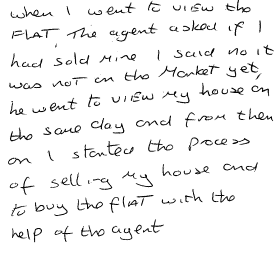 when I went to view the
FLAT, The agent asked if I
had sold mine I said no it
was not on the Market yet,
he went to view my house on
the same day and from then
on I started the process
of selling my house and
to buy the flat with the
help of the agent